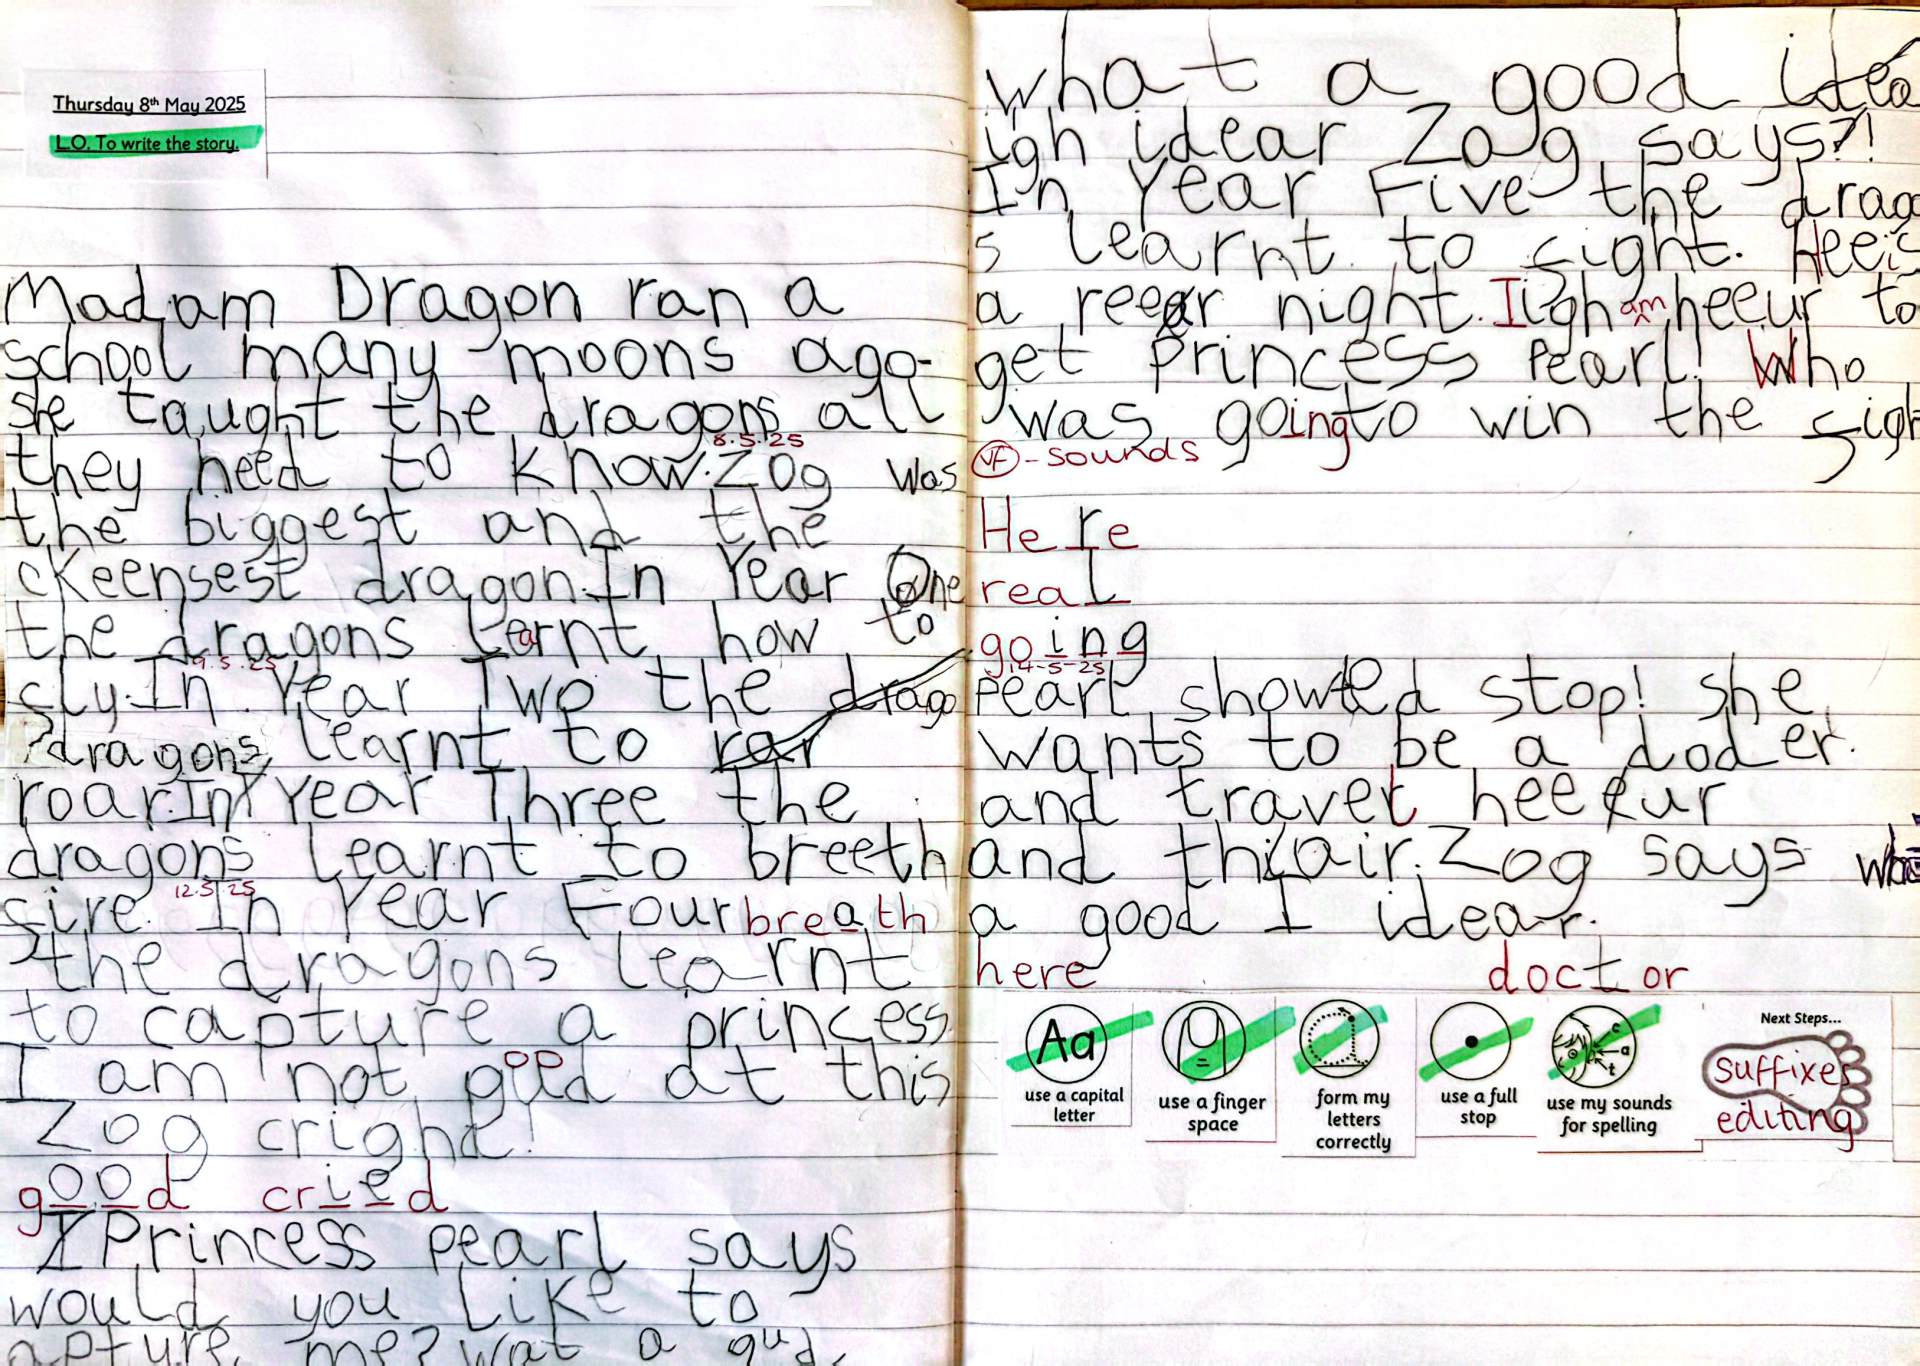 Thursday 8th May 2025
L.O. To write the story.
Madam Dragon ran a
school many moons ago.
she taught the dragons all
8.5.25
they need to know. Zog was
the biggest and the
ckeensest dragon. In Year One
the dragons learnt how to
9.5.25
fly. In Year Two the drago
dragons learnt to rar
roar. In Year Three the
dragons learnt to breeth
12.5.25
fire. In Year Four breath
the dragons learnt
to capture a princess.
oo
I am not gud at this
Zog crighd!
good cried
I Princess pearl says
would you like to
apture me? wat a gud
what a good idea
igh idear Zog says?!
In Year Five the drago
s learnt to fight. Hee is
a reer night. I igh am heeur to
get Princess Pearl! Who
was going to win the figh
VF - sounds
Here
real
going
14-5-25
Pearl showted stop! she
wants to be a docter.
and travel heeur
and thair. Zog says
a good I idear.
here doctor
Aa
use a capital letter
use a finger space
form my letters correctly
use a full stop
c a t
use my sounds for spelling
Next Steps...
suffixes
editing